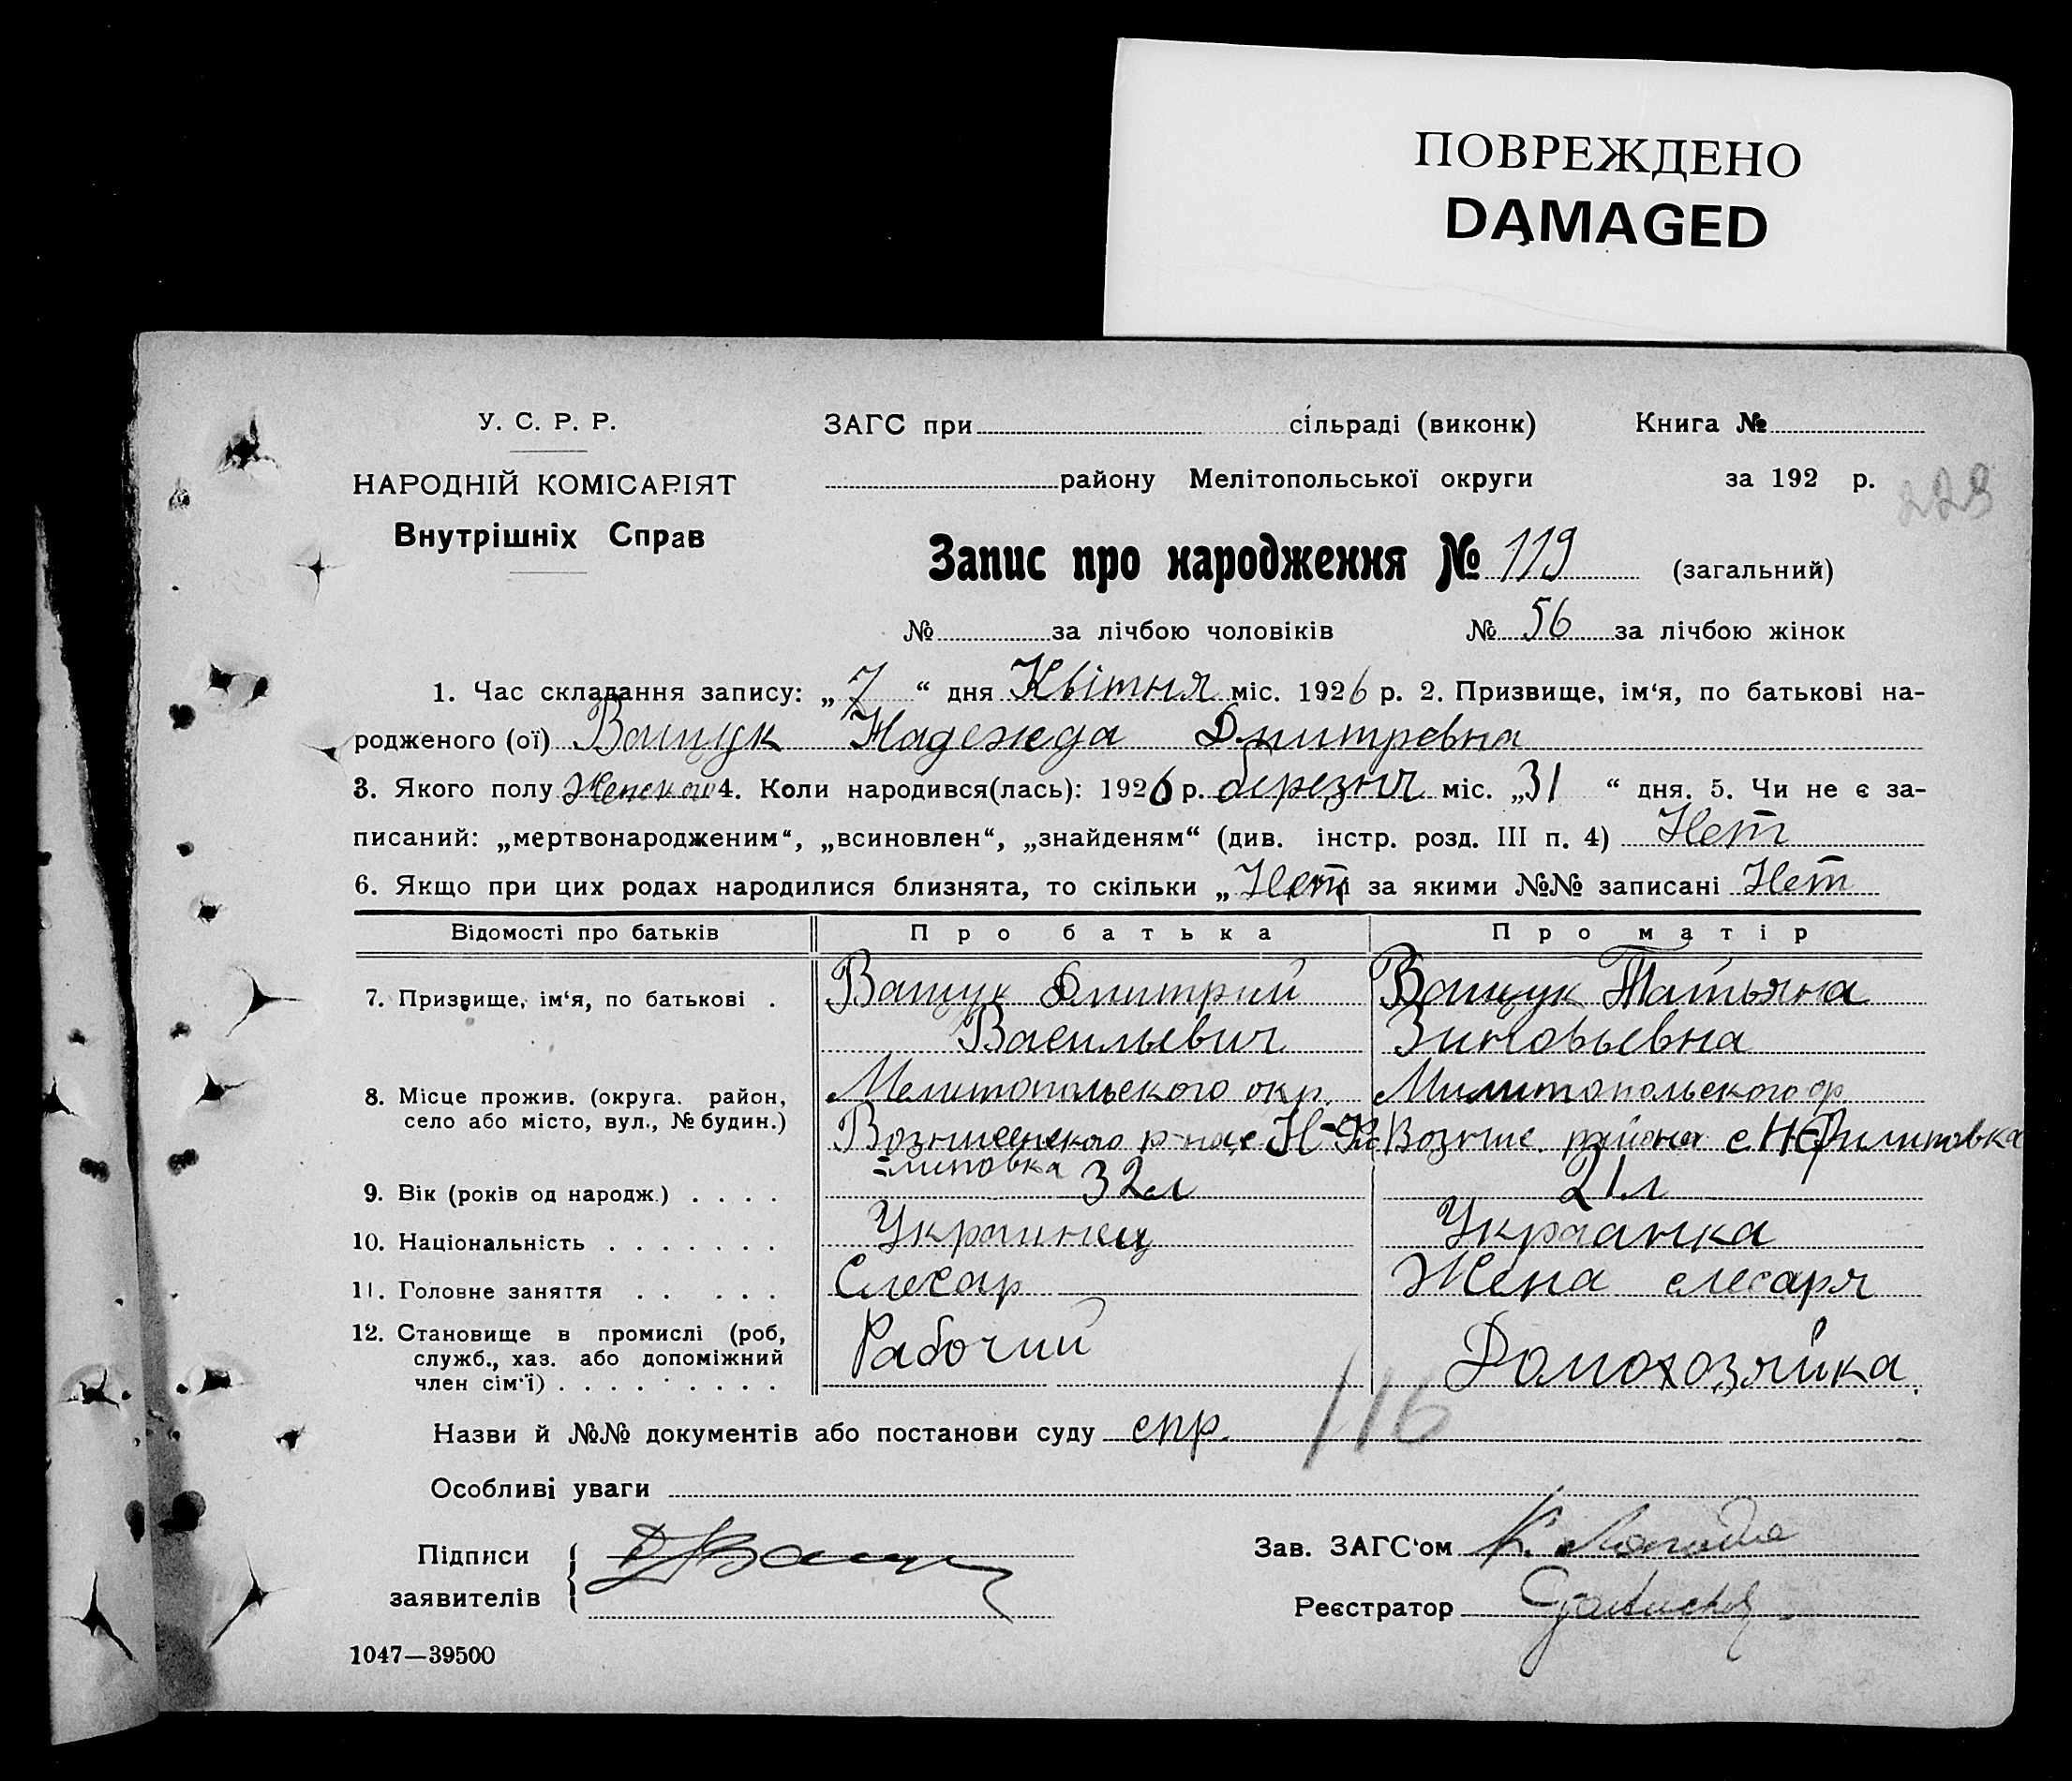 ПОВРЕЖДЕНО
DAMAGED
У. С. Р. Р.
НАРОДНІЙ КОМІСАРІЯТ
Внутрішніх Справ
ЗАГС при сільраді (виконк) Книга №
району Мелітопольської округи за 192 р.
228
Запис про народження № 119 (загальний)
№ за лічбою чоловіків № 56 за лічбою жінок
1. Час складання запису: „7“ дня Квітня міс. 1926 р. 2. Призвище, ім‘я, по батькові на-
родженого (ої) Ващук Надежда Дмитревна
3. Якого полу Женского 4. Коли народився(лась): 1926 р. березня міс. „31“ дня. 5. Чи не є за-
писаний: „мертвонародженим“, „всиновлен“, „знайденям“ (див. інстр. розд. III п. 4) Нет
6. Якщо при цих родах народилися близнята, то скільки „Нет за якими №№ записані Нет
Відомості про батьків Про батька Про матір
7. Призвище, ім‘я, по батькові . Ващук Дмитрий Ващук Татьяна
Васильевич Зиновьевна
8. Місце прожив. (округа. район, Мелитопольского окр. Милитопольского
село або місто, вул., № будин.) р-на с. Н-Фи Возныше. района с. Н-Филиповка
=липовка
9. Вік (років од народж.) . . . . 32 л 21 л
10. Національність . . . . . . . Украинец Украанка
11. Головне заняття . . . . . Слесар Жена слесаря
12. Становище в промислі (роб, Рабочий Домохозяйка
служб., хаз. або допоміжний
член сім‘ї) . . . . . . . . .
116
Назви й №№ документів або постанови суду спр.
Особливі уваги
Підписи
заявителів
Зав. ЗАГС‘ом К.
Реєстратор
1047—39500